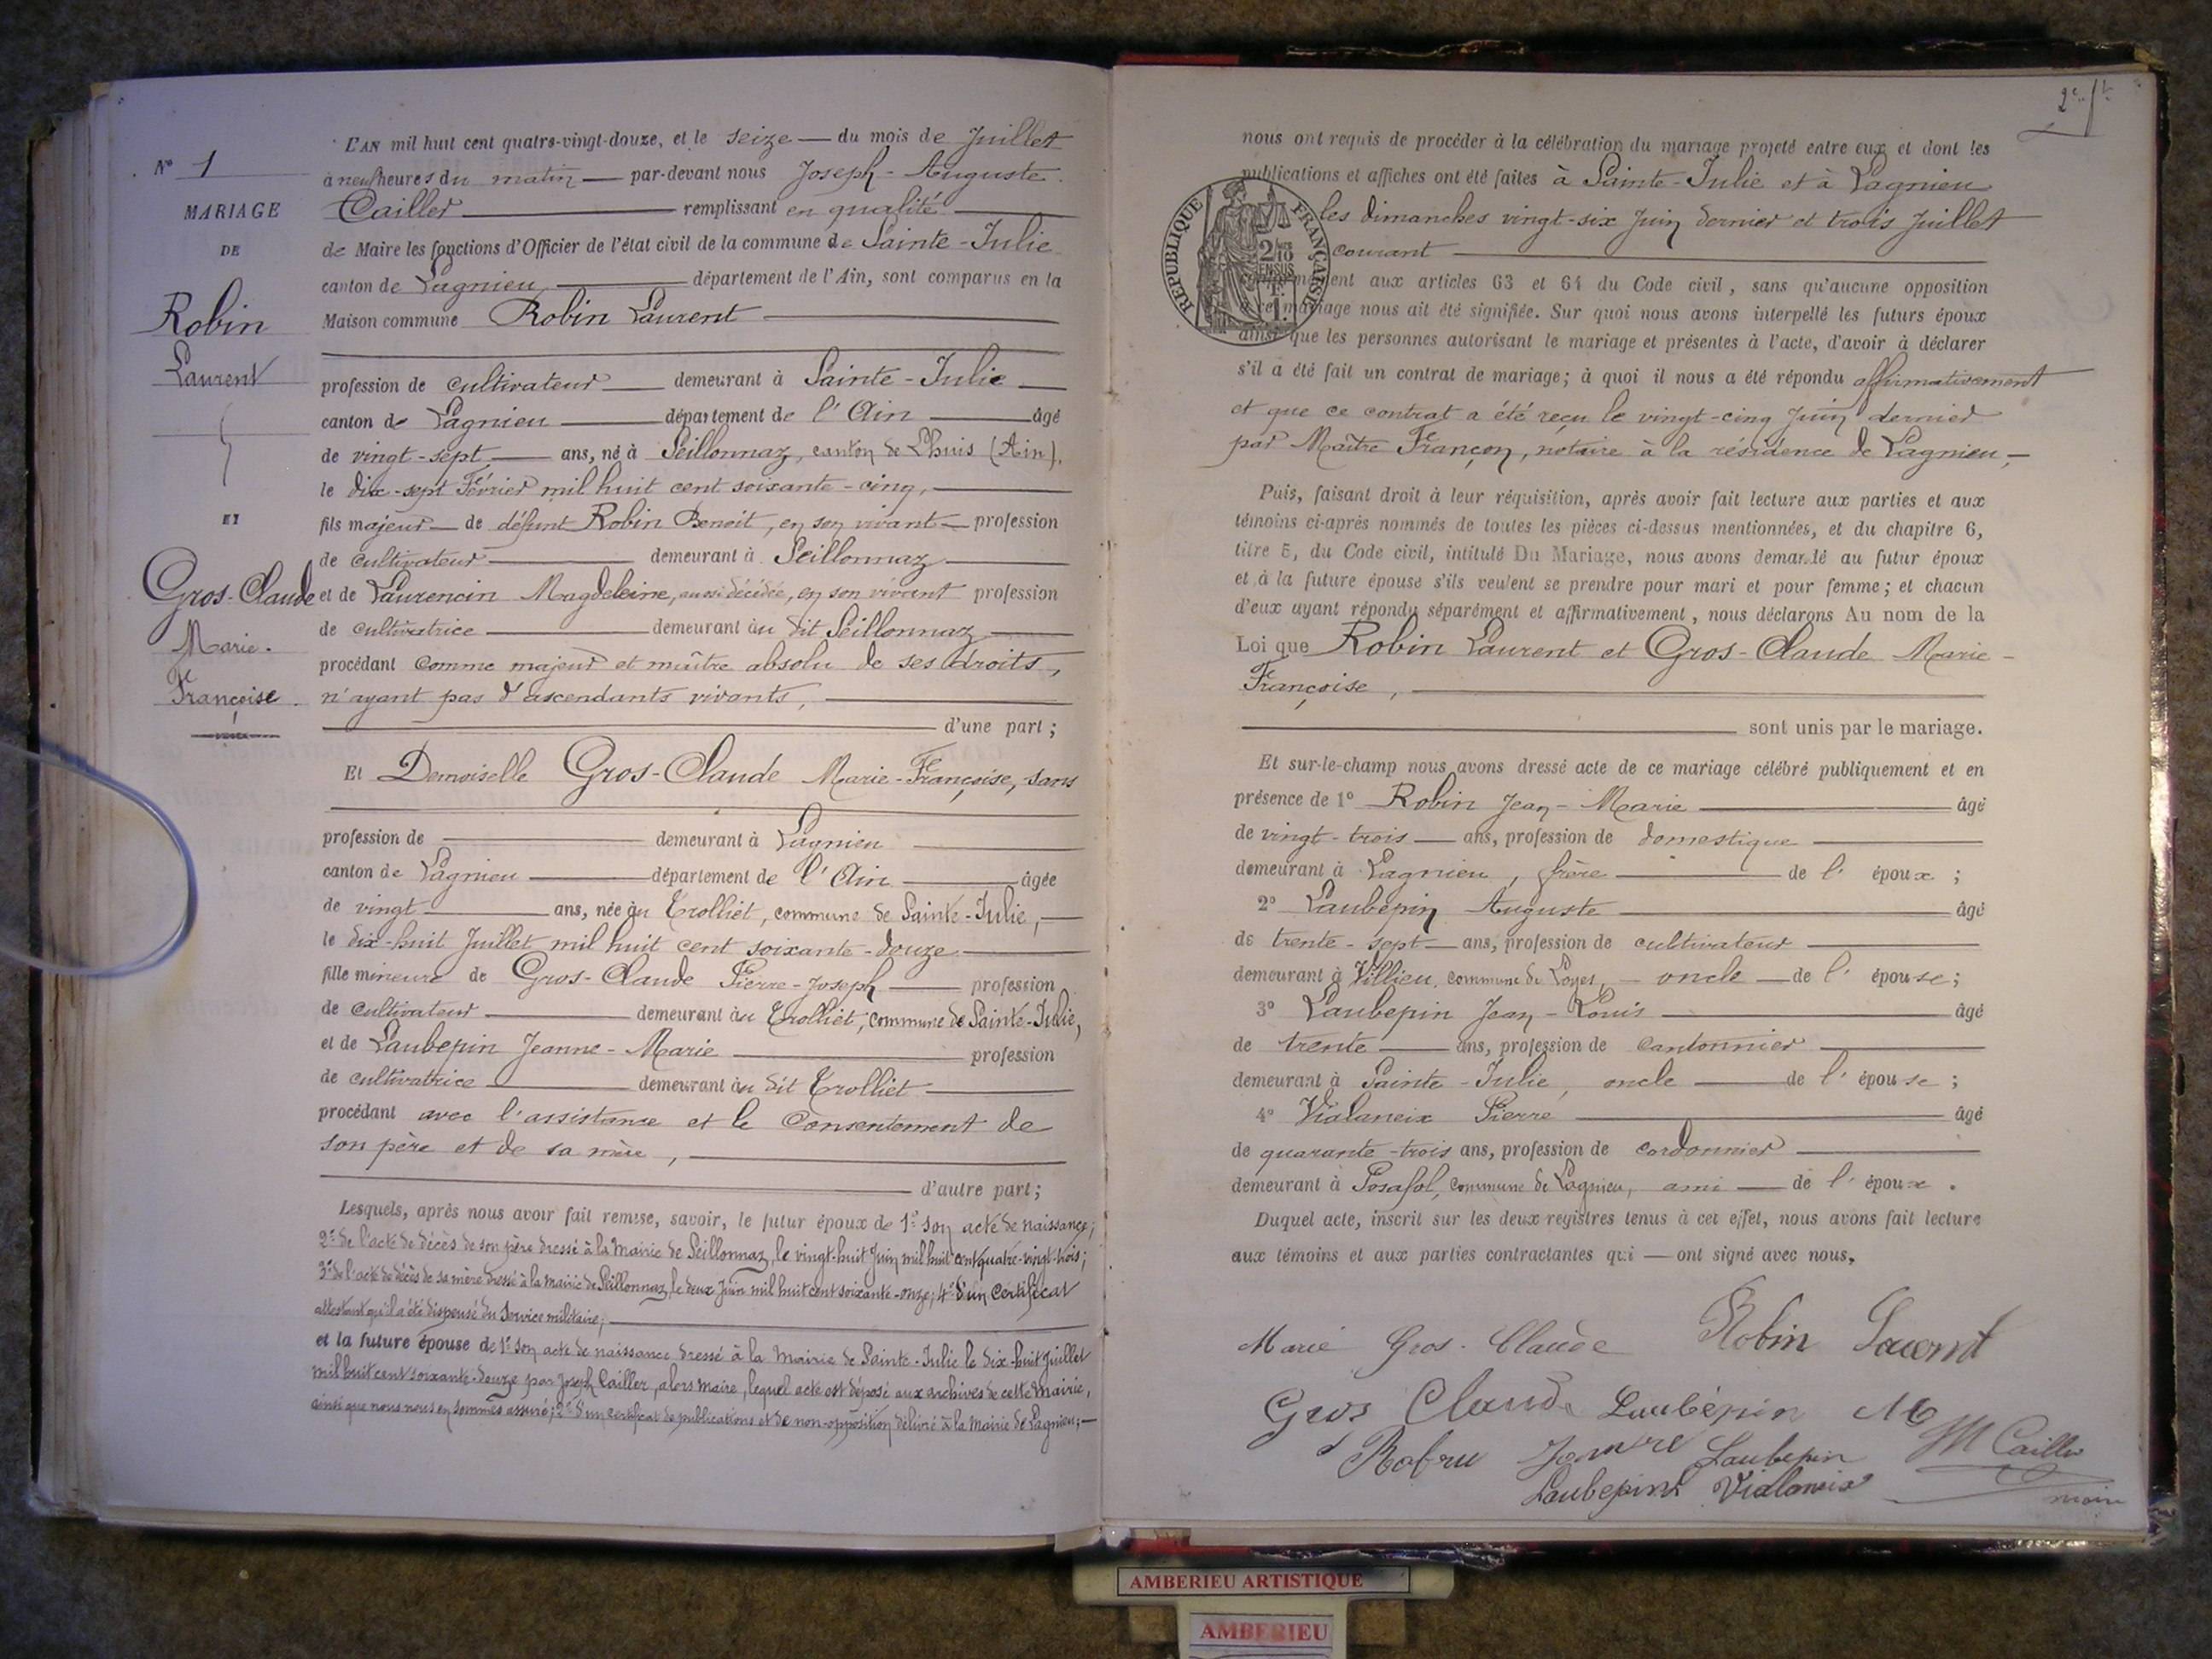 N° 1
MARIAGE
DE
Robin
Laurent
ET
Gros-Claude
Marie-
Françoise
L'AN mil huit cent quatre-vingt-douze, et le seize du mois de Juillet
à neuf heures du matin par-devant nous Joseph-Auguste
Cailler remplissant en qualité
de Maire les fonctions d'Officier de l'état civil de la commune de Sainte-Julie
canton de Lagnieu département de l'Ain, sont comparus en la
Maison commune Robin Laurent
profession de cultivateur demeurant à Sainte-Julie
canton de Lagnieu département de l'Ain âgé
de vingt-sept ans, né à Seillonnaz, canton de Lhuis (Ain),
le dix-sept Février mil huit cent soixante-cinq,
fils majeur de défunt Robin Benoit, en son vivant profession
de cultivateur demeurant à Seillonnaz
et de Laurencin Magdeleine, aussi décédée, en son vivant profession
de cultivatrice demeurant au dit Seillonnaz
procédant comme majeur et maître absolu de ses droits,
n'ayant pas d'ascendants vivants,
d'une part;
Et Demoiselle Gros-Claude Marie-Françoise, sans
profession de demeurant à Lagnieu
canton de Lagnieu département de l'Ain âgée
de vingt ans, née au Trolliet, commune de Sainte-Julie,
le dix-huit Juillet mil huit cent soixante-douze
fille mineure de Gros-Claude Pierre-Joseph profession
de cultivateur demeurant au Trolliet, commune de Sainte-Julie,
et de Laubepin Jeanne-Marie profession
de cultivatrice demeurant au dit Trolliet
procédant avec l'assistance et le consentement de
son père et de sa mère,
d'autre part;
Lesquels, après nous avoir fait remise, savoir, le futur époux de 1° son acte de naissance;
2° de l'acte de décès de son père dressé à la Mairie de Seillonnaz, le vingt-huit Juin mil huit cent quatre-vingt-trois;
3° de l'acte de décès de sa mère dressé à la mairie de Seillonnaz, le deux Juin mil huit cent soixante-onze; 4° d'un certificat
attestant qu'il a été dispensé du Service militaire;
et la future épouse de 1° son acte de naissance dressé à la Mairie de Sainte-Julie le dix-huit Juillet
mil huit cent soixante-douze par Joseph Cailler, alors maire, lequel acte est déposé aux archives de cette Mairie,
ainsi que nous nous en sommes assuré; 2° d'un certificat de publications et de non-opposition délivré à la Mairie de Lagnieu;
nous ont requis de procéder à la célébration du mariage projeté entre eux et dont les
publications et affiches ont été faites à Sainte-Julie et à Lagnieu
les dimanches vingt-six Juin dernier et trois Juillet
courant
RÉPUBLIQUE FRANÇAISE
conformément aux articles 63 et 64 du Code civil, sans qu'aucune opposition
à ce mariage nous ait été signifiée. Sur quoi nous avons interpellé les futurs époux
ainsi que les personnes autorisant le mariage et présentes à l'acte, d'avoir à déclarer
s'il a été fait un contrat de mariage; à quoi il nous a été répondu affirmativement
et que ce contrat a été reçu le vingt-cinq Juin dernier
par Maître Françon, notaire à la résidence de Lagnieu,
Puis, faisant droit à leur réquisition, après avoir fait lecture aux parties et aux
témoins ci-après nommés de toutes les pièces ci-dessus mentionnées, et du chapitre 6,
titre 5, du Code civil, intitulé Du Mariage, nous avons demandé au futur époux
et à la future épouse s'ils veulent se prendre pour mari et pour femme; et chacun
d'eux ayant répondu séparément et affirmativement, nous déclarons Au nom de la
Loi que Robin Laurent et Gros-Claude Marie-
Françoise,
sont unis par le mariage.
Et sur-le-champ nous avons dressé acte de ce mariage célébré publiquement et en
présence de 1° Robin Jean-Marie âgé
de vingt-trois ans, profession de domestique
demeurant à Lagnieu, frère de l'époux;
2° Laubepin Auguste âgé
de trente-sept ans, profession de cultivateur
demeurant à Villieu, commune de Loyes, oncle de l'épouse;
3° Laubepin Jean-Louis âgé
de trente ans, profession de cantonnier
demeurant à Sainte-Julie, oncle de l'épouse;
4° Vialaneix Pierre âgé
de quarante-trois ans, profession de cordonnier
demeurant à Posafol, commune de Lagnieu, ami de l'époux.
Duquel acte, inscrit sur les deux registres tenus à cet effet, nous avons fait lecture
aux témoins et aux parties contractantes qui ont signé avec nous,
Marie Gros-Claude Robin
Gros Claude Laubépin
Laubepin Cailler
Laubepin Vialaneix maire
AMBERIEU ARTISTIQUE
AMBERIEU